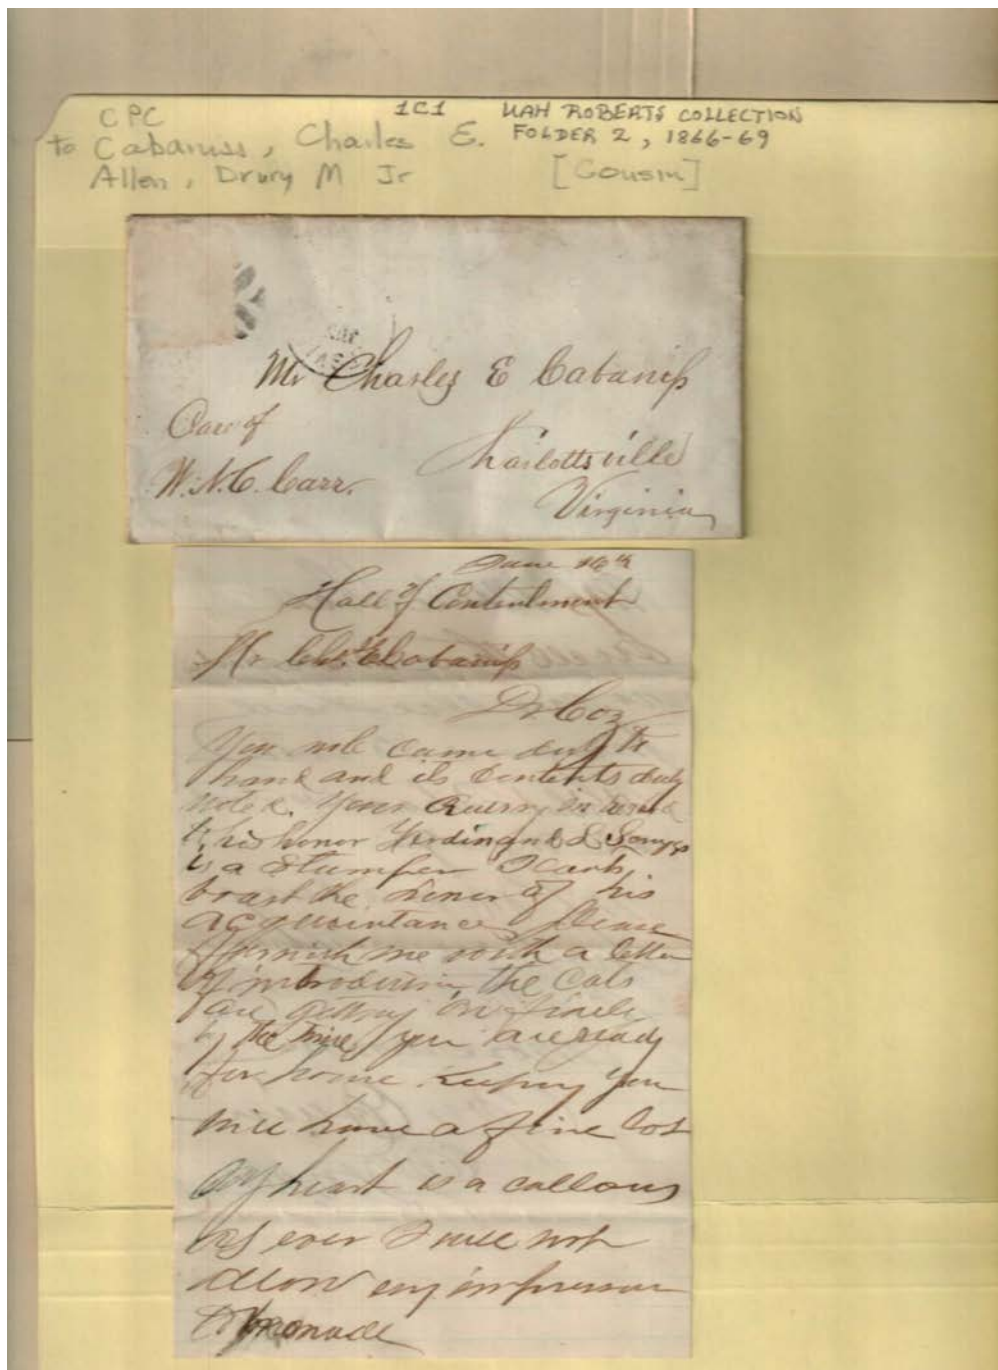 CPC 1C1 UAH ROBERTS COLLECTION
to Cabaniss, Charles E. FOLDER 2, 1866-69
Allen, Drury M Jr [Cousin]
Mr Charles E Cabaniss
Care of
Charlottsville
W.N.C. Carr.
Virginia
June 16th
Hall of Contentment
Mr Chs. E Cabaniss
Dr Coz
You note came duly to
hand and its contents duly
noted. Your Query in regard
to his honor Ferdinand L
is a Stumper I cant
boast the honor of his
acquaintance Please
furnish me with a letter
of introduction, the Cats
are getting on finely
by the time you are ready
for home keeping you
will have a fine lot
My heart is a callous
as ever I will not
allow any impression
made